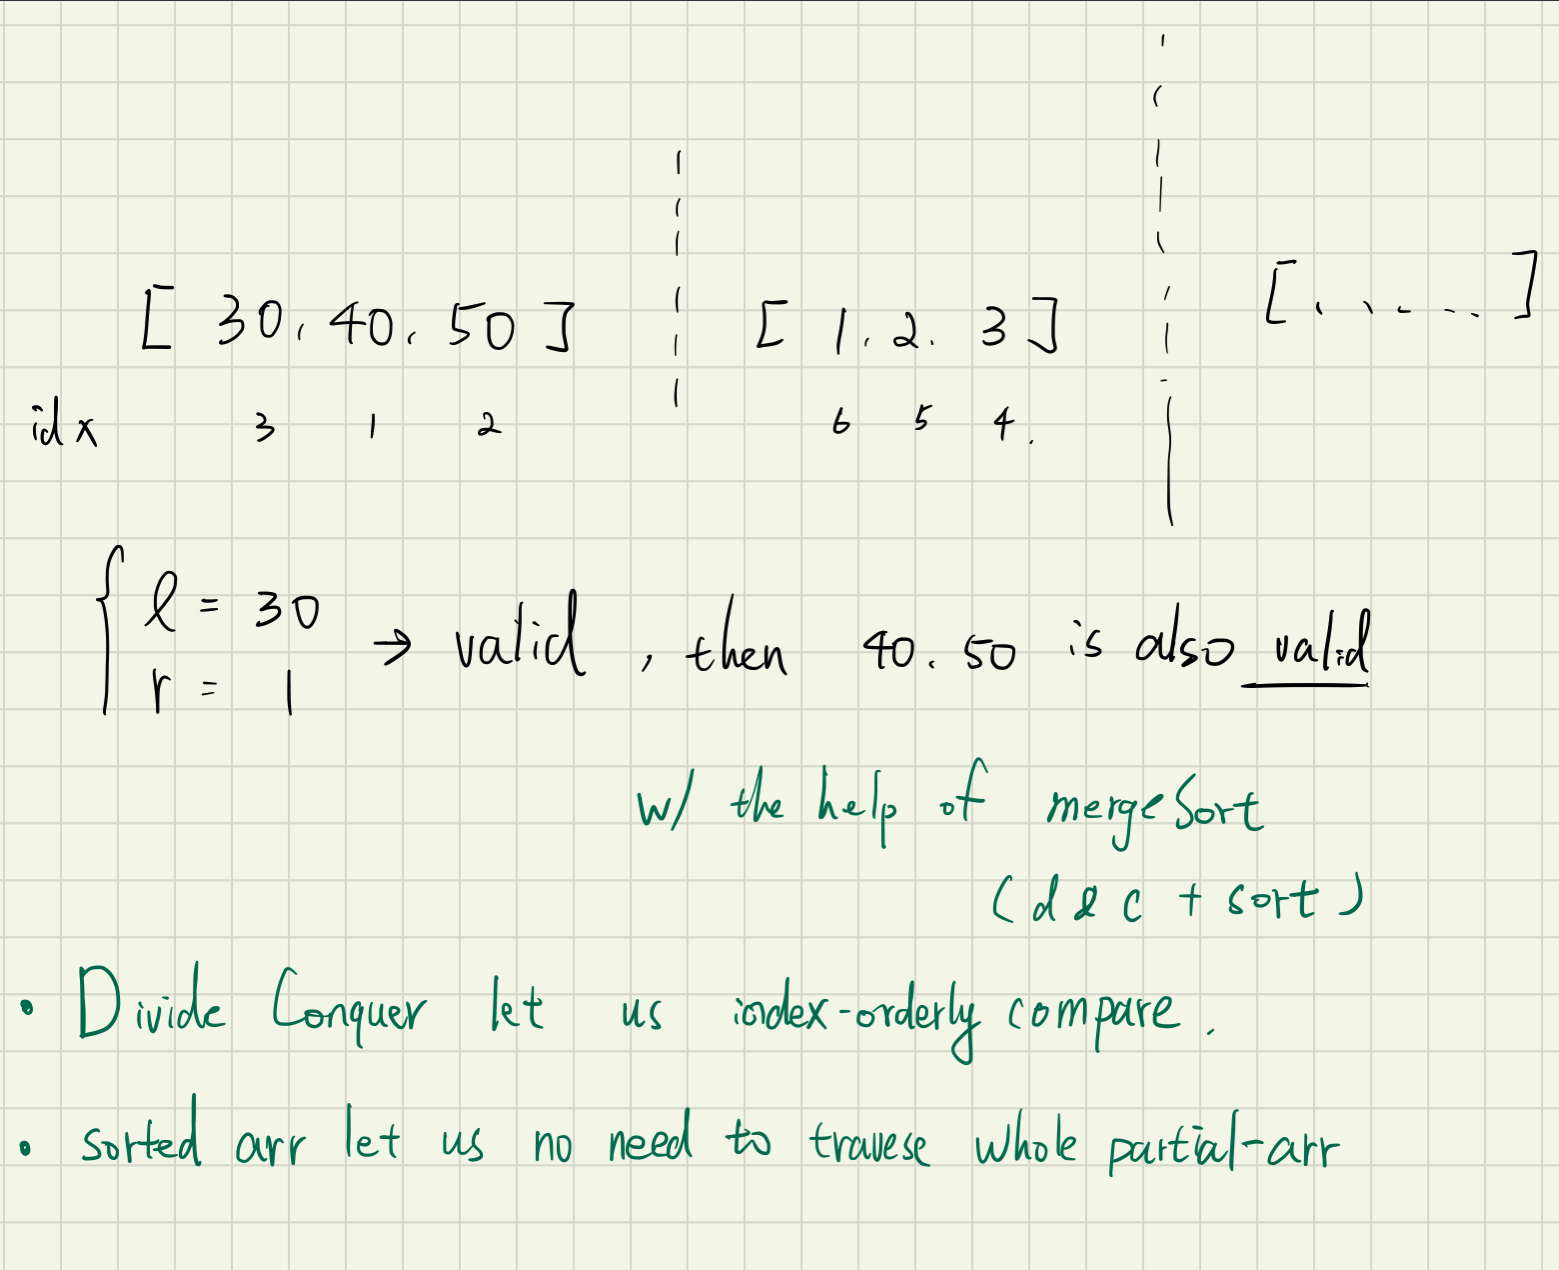 [ 30, 40, 50 ] [ 1, 2, 3 ] [ , , . . . ]
idx 3 1 2 6 5 4.
{ l = 30
r = 1
→ valid, then 40. 50 is also valid
w/ the help of mergeSort
(d & c + sort)
• Divide Conquer let us index-orderly compare.
• sorted arr let us no need to travese whole partial-arr